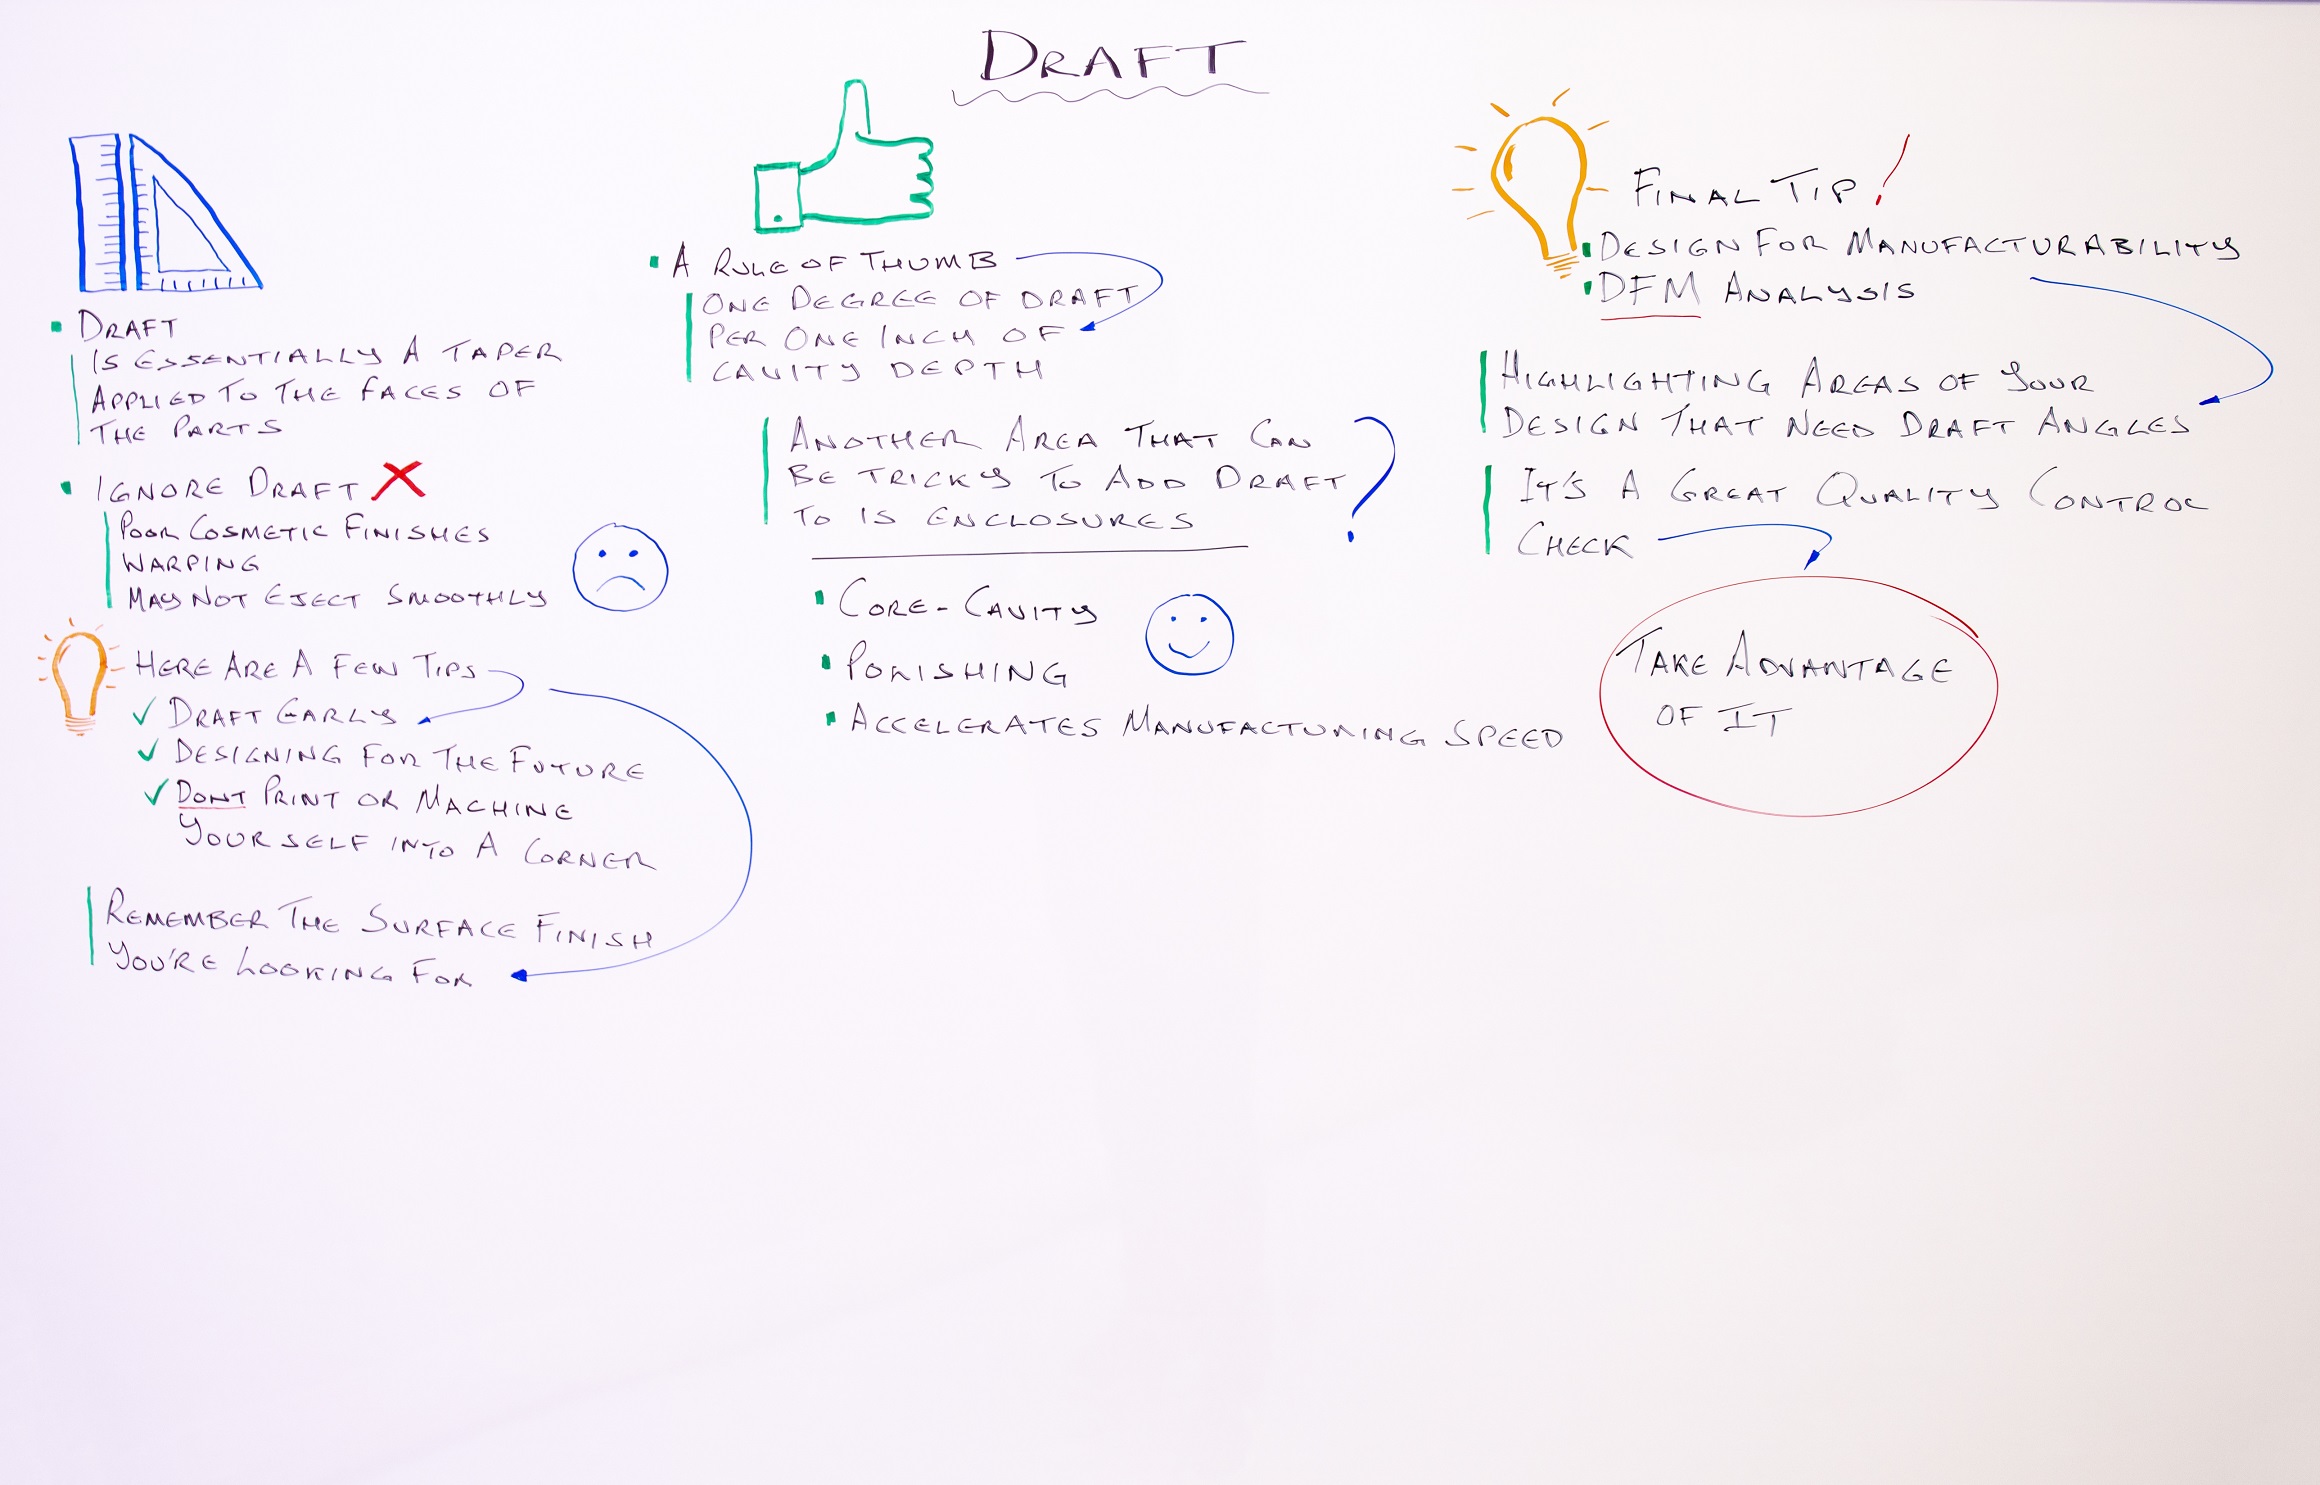 DRAFT
DRAFT
IS ESSENTIALLY A TAPER
APPLIED TO THE FACES OF
THE PARTS
IGNORE DRAFT
POOR COSMETIC FINISHES
WARPING
MAY NOT EJECT SMOOTHLY
HERE ARE A FEW TIPS
DRAFT EARLY
DESIGNING FOR THE FUTURE
DONT PRINT OR MACHINE
YOURSELF INTO A CORNER
REMEMBER THE SURFACE FINISH
YOU'RE LOOKING FOR
A RULE OF THUMB
ONE DEGREE OF DRAFT
PER ONE INCH OF
CAVITY DEPTH
ANOTHER AREA THAT CAN
BE TRICKY TO ADD DRAFT
TO IS ENCLOSURES
?
CORE-CAVITY
POLISHING
ACCELERATES MANUFACTURING SPEED
FINAL TIP!
DESIGN FOR MANUFACTURABILITY
DFM ANALYSIS
HIGHLIGHTING AREAS OF YOUR
DESIGN THAT NEED DRAFT ANGLES
IT'S A GREAT QUALITY CONTROL
CHECK
TAKE ADVANTAGE
OF IT